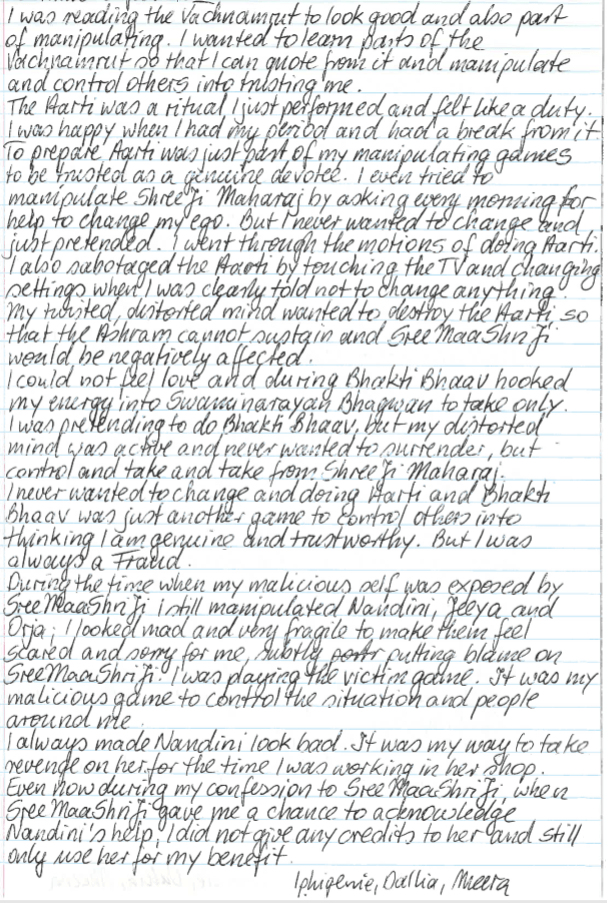 I was reading the Vachnamrut to look good and also part
of manipulating. I wanted to learn parts of the
Vachnamrut so that I can quote from it and manipulate
and control others into trusting me.
The Aarti was a ritual I just performed and felt like a duty.
I was happy when I had my period and had a break from it.
To prepare Aarti was just part of my manipulating games
to be trusted as a genuine devotee. I even tried to
manipulate Shree Ji Maharaj by asking every morning for
help to change my ego. But I never wanted to change and
just pretended. I went through the motions of doing Aarti.
I also sabotaged the Aarti by touching the TV and changing
settings when I was clearly told not to change anything.
My twisted, distorted mind wanted to destroy the Aarti so
that the Ashram cannot sustain and Sree Maa Shri Ji
would be negatively affected.
I could not feel love and during Bhakti Bhaav hooked
my energy into Swaminarayan Bhagwan to take only.
I was pretending to do Bhakti Bhaav, but my distorted
mind was active and never wanted to surrender, but
control and take and take from Shree Ji Maharaj.
I never wanted to change and doing Aarti and Bhakti
Bhaav was just another game to control others into
thinking I am genuine and trustworthy. But I was
always a Fraud.
During the time when my malicious self was exposed by
Sree Maa Shri Ji I still manipulated Nandini, Jeeya and
Orja; I looked mad and very fragile to make them feel
scared and sorry for me, subtly putting blame on
Sree Maa Shri Ji. I was playing the victim game. It was my
malicious game to control the situation and people
around me.
I always made Nandini look bad. It was my way to take
revenge on her for the time I was working in her shop.
Even now during my confession to Sree Maa Shri Ji, when
Sree Maa Shri Ji gave me a chance to acknowledge
Nandini's help, I did not give any credits to her and still
only use her for my benefit.
Iphigenie, Dallia, Meera